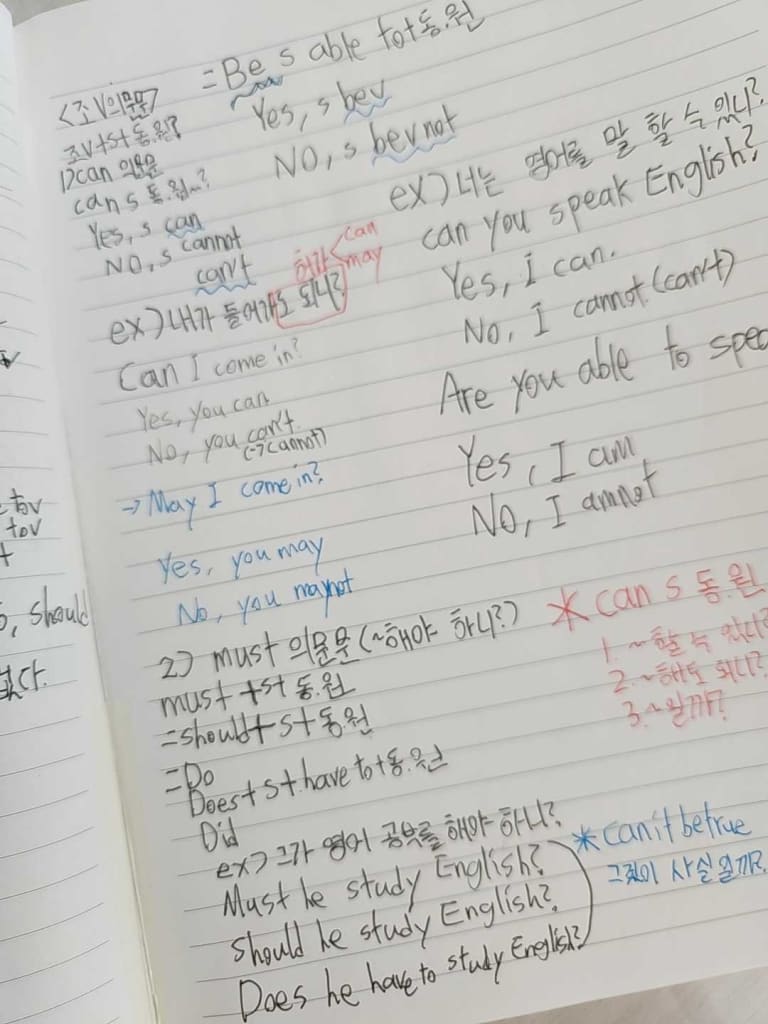 <조V의문문>
조V+s+동.원?
1) can 의문문
can s 동.원~?
Yes, s can
NO, s cannot
can't
허가 < can
may
ex) 내가 들어가도 되니?
Can I come in?
Yes, you can
No, you can't
(→cannot)
→ May I come in?
Yes, you may
No, you maynot
= Be s able to+동.원
Yes, s bev
NO, s bevnot
ex) 너는 영어를 말 할 수 있니?
can you speak English?
Yes, I can.
No, I cannot (can't)
Are you able to spea
Yes, I am
No, I amnot
2) must 의문문 (~해야 하니?)
must +s+ 동.원
=should+s+동.원
=Do
Does+s+have to+동.원
Did
* can s 동.원
1. ~할 수 있니?
2. ~해도 되니?
3. ~일까?
ex) 그가 영어 공부를 해야 하니?
Must he study English?
should he study English?
Does he have to study English?
* can it be true
그것이 사실 일까?
tov
tov
t
, should
없다.